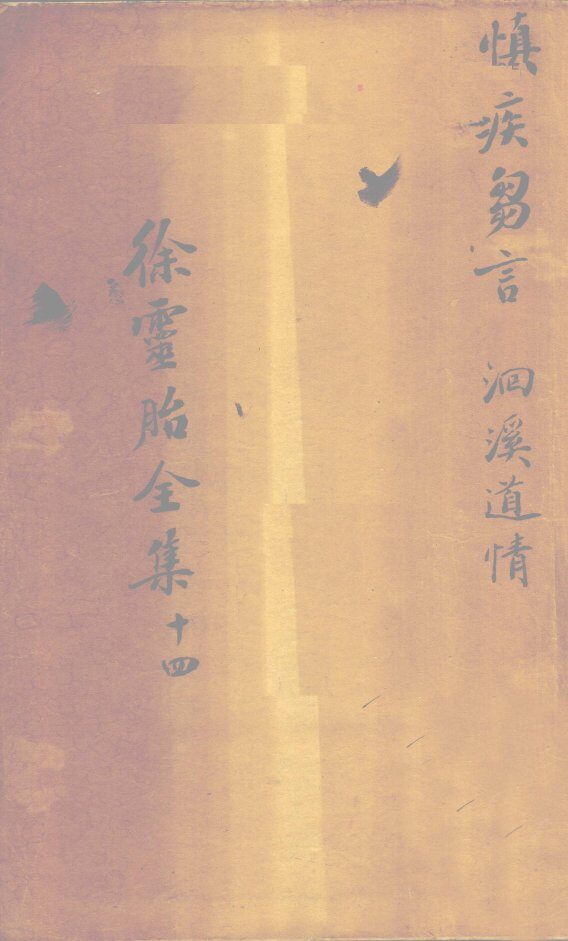 慎疾芻言 洄溪道情
徐靈胎全集 十四